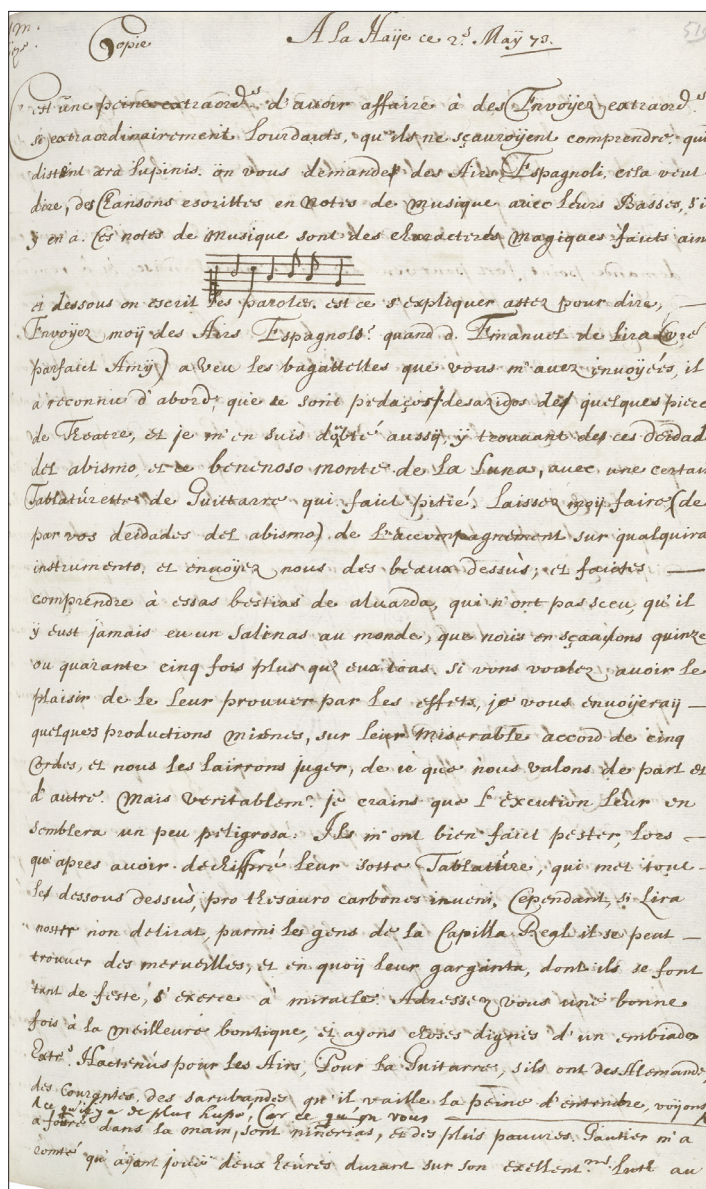 Copie A la Haÿe ce 2.ᵉ Maÿ 73.
C'est une peine extraord.ᵉ d'avoir affaire à des Envoyez extraord.ˢ
si extraordinairement lourdauts, qu'ils ne sçauroÿent comprendre, qui
distent æra lupinis. on vous demande des Airs Espagnoli, cela veut
dire, des Chansons escrittes en Notes de Musique avec leurs Basses, s'i
y en a. Ces notes de Musique sont des characteres Magiques faicts ain
et dessous on escrit les paroles. est ce s'expliquer assez pour dire,
Envoÿez moÿ des Airs Espagnols? quand d. Emanuel de Lira (vre
parfaict Amÿ) a veu les bagattelles que vous m'avez envoÿées, il
a reconnu d'abord, que ce sont pedaços desazidos de quelques piece
de Theatre, et je m'en suis doubté aussÿ, ÿ trouvant des ces deidad
del abismo, et ce benenoso monte de la Luna, avec une certain
Tablatürette de Guittarre qui faict pitié. Laissez moÿ faire, (de
par vos deidades del abismo) de l'accompagnement sur qualquira
instrumento, et envoÿez nous des beaux dessùs; et faictes
comprendre à essas bestias de alvarda, qui n'ont pas sceu, qu'il
ÿ eust jamais eu un Salinas au monde, que noüs en sçavons quinze
ou quarante cinq fois plus qu'eux tous. Si vous voulez avoir le
plaisir de le leur prouver par les effets, je vous envoÿeraÿ
quelques productions mienes, sur leur miserable accord de cinq
Cordes, et nous les lairrons juger, de ce que nous valons de part et
d'autre. Mais veritablem.ᵗ je crains que l'execution leur en
semblera un peu peligrosa. Ils m'ont bien faict pester, lors
qu'apres avoir dechiffré leur sotte Tablatüre, qui met tout
les dessous dessùs, pro thesauro carbones inveni. Cependant, si Lira
noster non delirat, parmi les gens de la Capilla Reql il se peut
trouver des merveilles, et en quoÿ leur garganta, dont ils se font
tant de feste, s'exerce à miracle. Adressez vous une bonne
fois à la meilleure boutique, et ayons choses dignes d'un embiado
Extr.ᵒ Hactenùs pour les Airs, Pour la Guitarre, s'ils ont des Alemande,
des Courantes, des sarabandes qu'il vaille la peine d'entendre, voÿons
ce qu'il y a de plus hupé, Car ce qu'on vous
a fourré dans la main, sont niñerias, et des plus pauvres. Gautier m'a
comté qu'aÿant joüé deux heures durant sur son exellent.ᵐᵉ Luth au